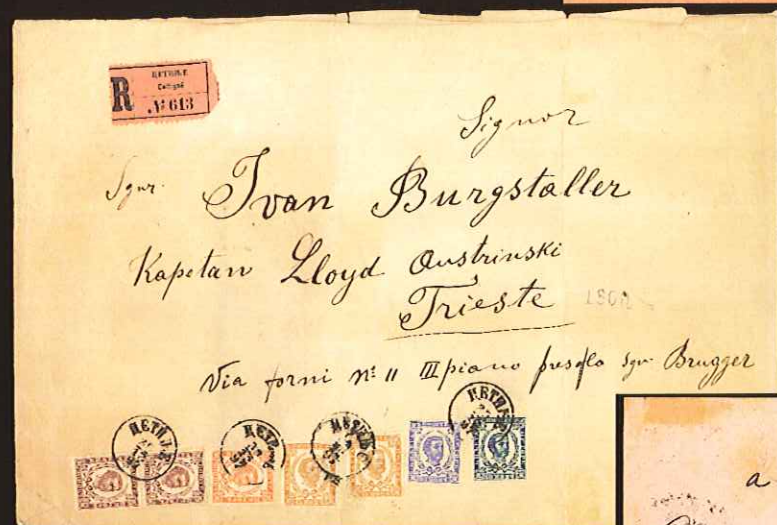 R
ЦЕТИЊЕ
Cettigné
№ 613
Signor
Sgnr.
Ivan Burgstaller
Kapetan Lloyd Austrinski
Trieste
Via forni Nº 11 III piano presso Sgn. Brugger
ЦЕТИЊЕ
a